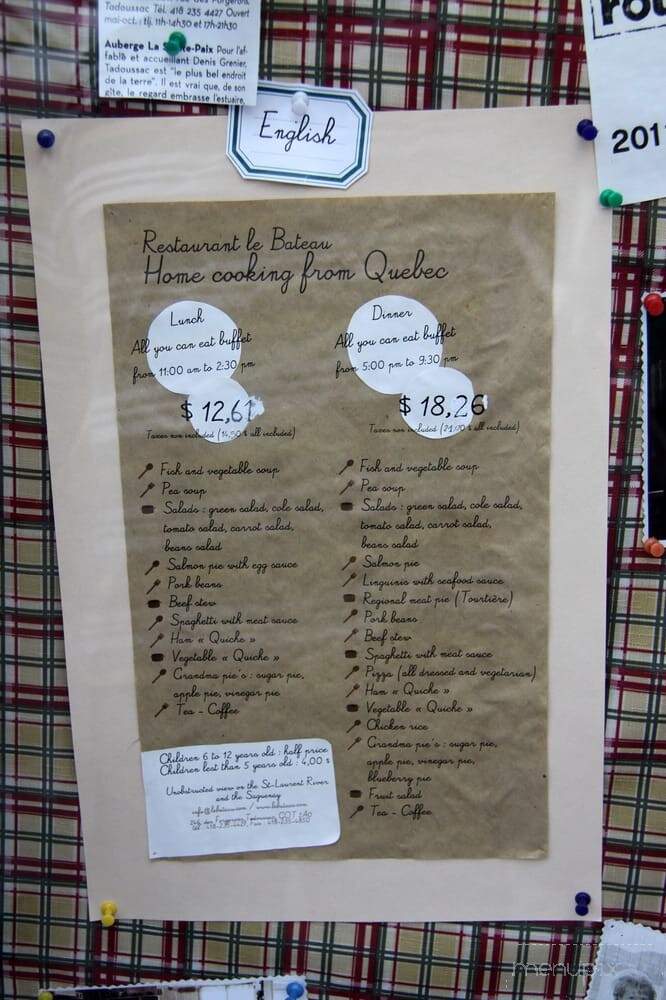 Tadoussac Tél. 418 235 4427 Ouvert
mai-oct.: tlj. 11h-14h30 et 17h-21h30
Auberge La Sainte-Paix Pour l'af-
fable et accueillant Denis Grenier,
Tadoussac est "le plus bel endroit
de la terre". Il est vrai que, de son
gîte, le regard embrasse l'estuaire,
English
201
Restaurant le Bateau
Home cooking from Quebec
Lunch
All you can eat buffet
from 11:00 am to 2:30 pm
$ 12,61
Taxes non included (14,50 $ all included)
Fish and vegetable soup
Pea soup
Salads : green salad, cole salad,
tomato salad, carrot salad,
beans salad
Salmon pie with egg sauce
Pork beans
Beef stew
Spaghetti with meat sauce
Ham « Quiche »
Vegetable « Quiche »
Grandma pie's : sugar pie,
apple pie, vinegar pie
Tea - Coffee
Dinner
All you can eat buffet
from 5:00 pm to 9:30 pm
$ 18,26
Taxes non included (21,00 $ all included)
Fish and vegetable soup
Pea soup
Salads : green salad, cole salad,
tomato salad, carrot salad,
beans salad
Salmon pie
Linguinis with seafood sauce
Regional meat pie (Tourtière)
Pork beans
Beef stew
Spaghetti with meat sauce
Pizza (all dressed and vegetarian)
Ham « Quiche »
Vegetable « Quiche »
Chicken rice
Grandma pie's : sugar pie,
apple pie, vinegar pie,
blueberry pie
Fruit salad
Tea - Coffee
Children 6 to 12 years old : half price
Children lest than 5 years old : 4,00 $
Unobstructed view on the St-Laurent River
and the Saguenay
info@lebateau.com / www.lebateau.com
menupix